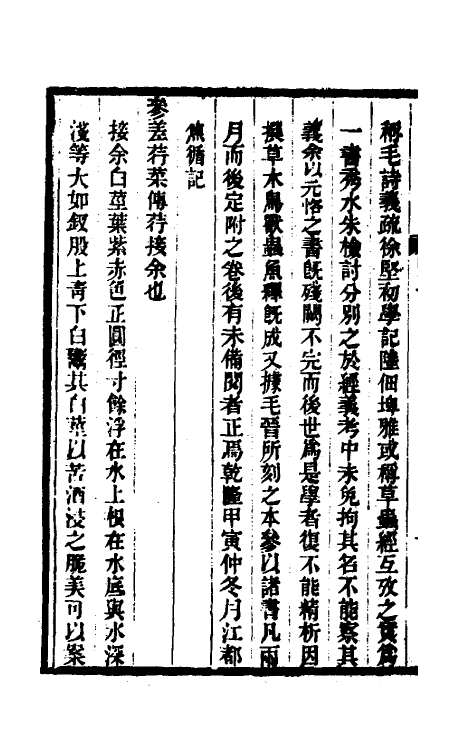 稱毛詩義疏徐堅初學記陸佃埤雅或稱草蟲經互攷之實爲
一書秀水朱檢討分別之於經義考中未免拘其名不能察其
義余以元恪之書旣殘闕不完而後世爲是學者復不能精析因
撰草木鳥獸蟲魚釋旣成又據毛晉所刻之本參以諸書凡兩
月而後定附之卷後有未備閱者正焉乾隆甲寅仲冬月江都
焦循記
參差荇菜傳荇接余也
接余白莖葉紫赤色正圓徑寸餘浮在水上根在水底與水深
淺等大如釵股上靑下白鬻其白莖以苦酒浸之脆美可以案